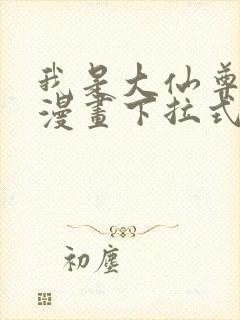 我是大仙尊
漫畫下拉式
初塵